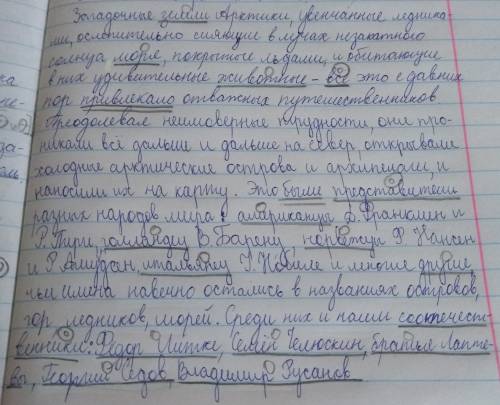 Загадочные земли Арктики, увенчанные ледника-
ми, ослепительно сияющие в лучах незакатного
солнца моря, покрытые льдами, и обитающие
в них удивительные животные – всё это с давних
пор привлекало отважных путешественников.
Преодолевая неимоверные трудности, они про-
никали всё дальше и дальше на север, открывали
холодные арктические острова и архипелаги, и
наносили их на карту. Это были представители
разных народов мира: американцы Д. Франклин и
Р. Пири, голландец В. Баренц, норвежцы Ф. Нансен
и Р. Амундсен, итальянец У. Нобиле и многие другие
чьи имена навечно остались в названиях островов,
гор, ледников, морей. Среди них и наши соотечест-
венники: Фёдор Литке, Семён Челюскин, братья Лапте-
вы, Георгий Седов, Владимир Русанов